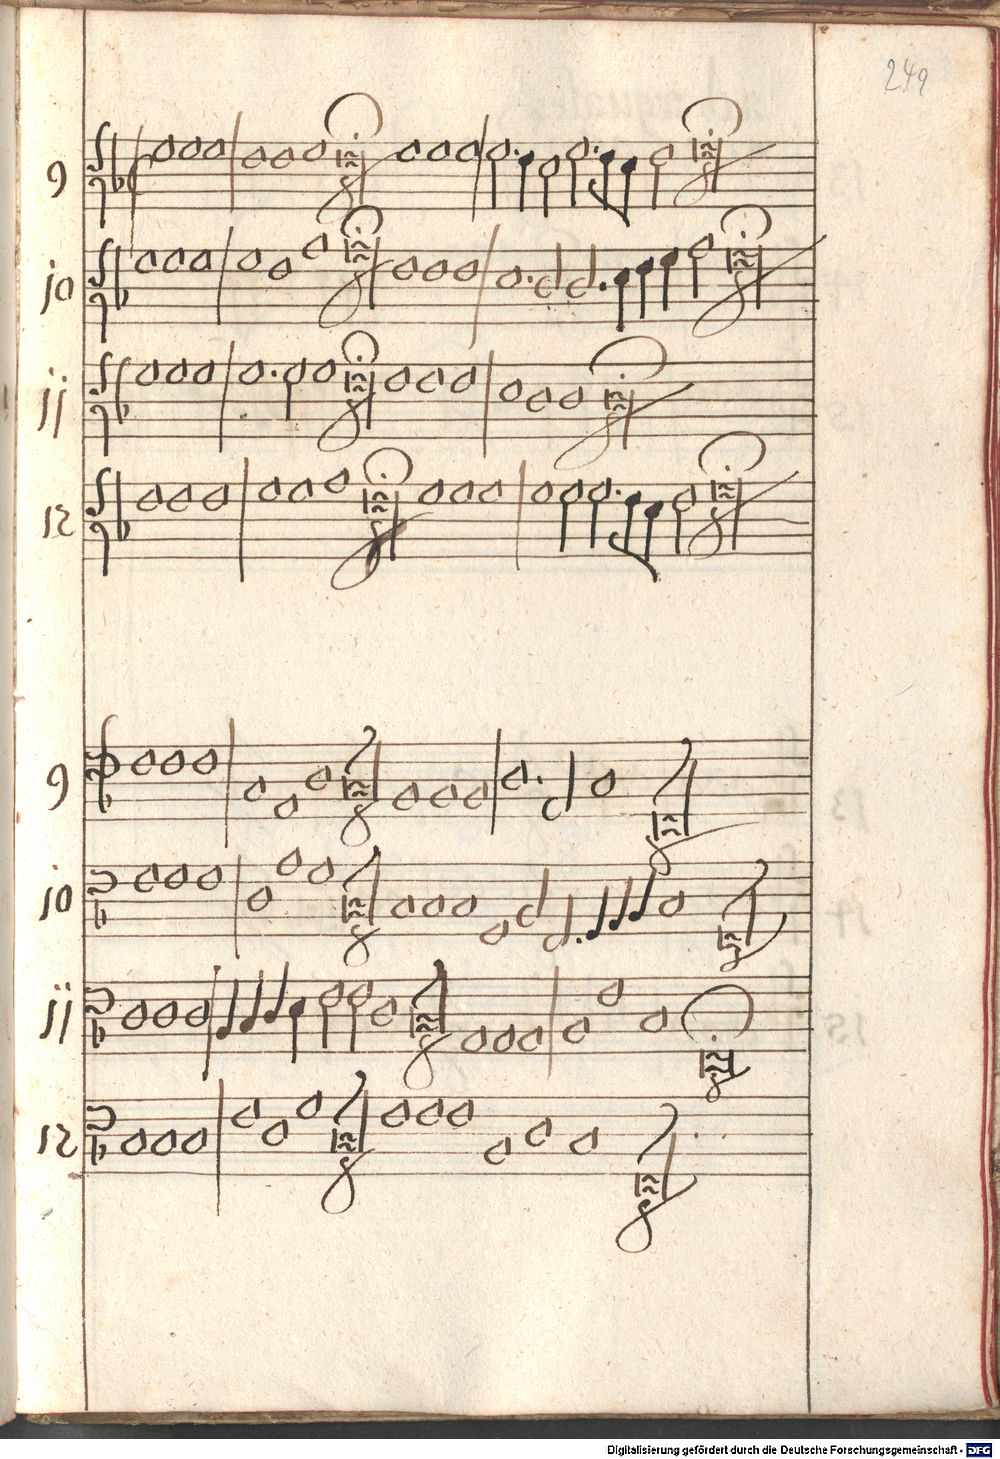 249
9
10
11
12
9
10
11
12
Digitalisierung gefördert durch die Deutsche Forschungsgemeinschaft - DFG